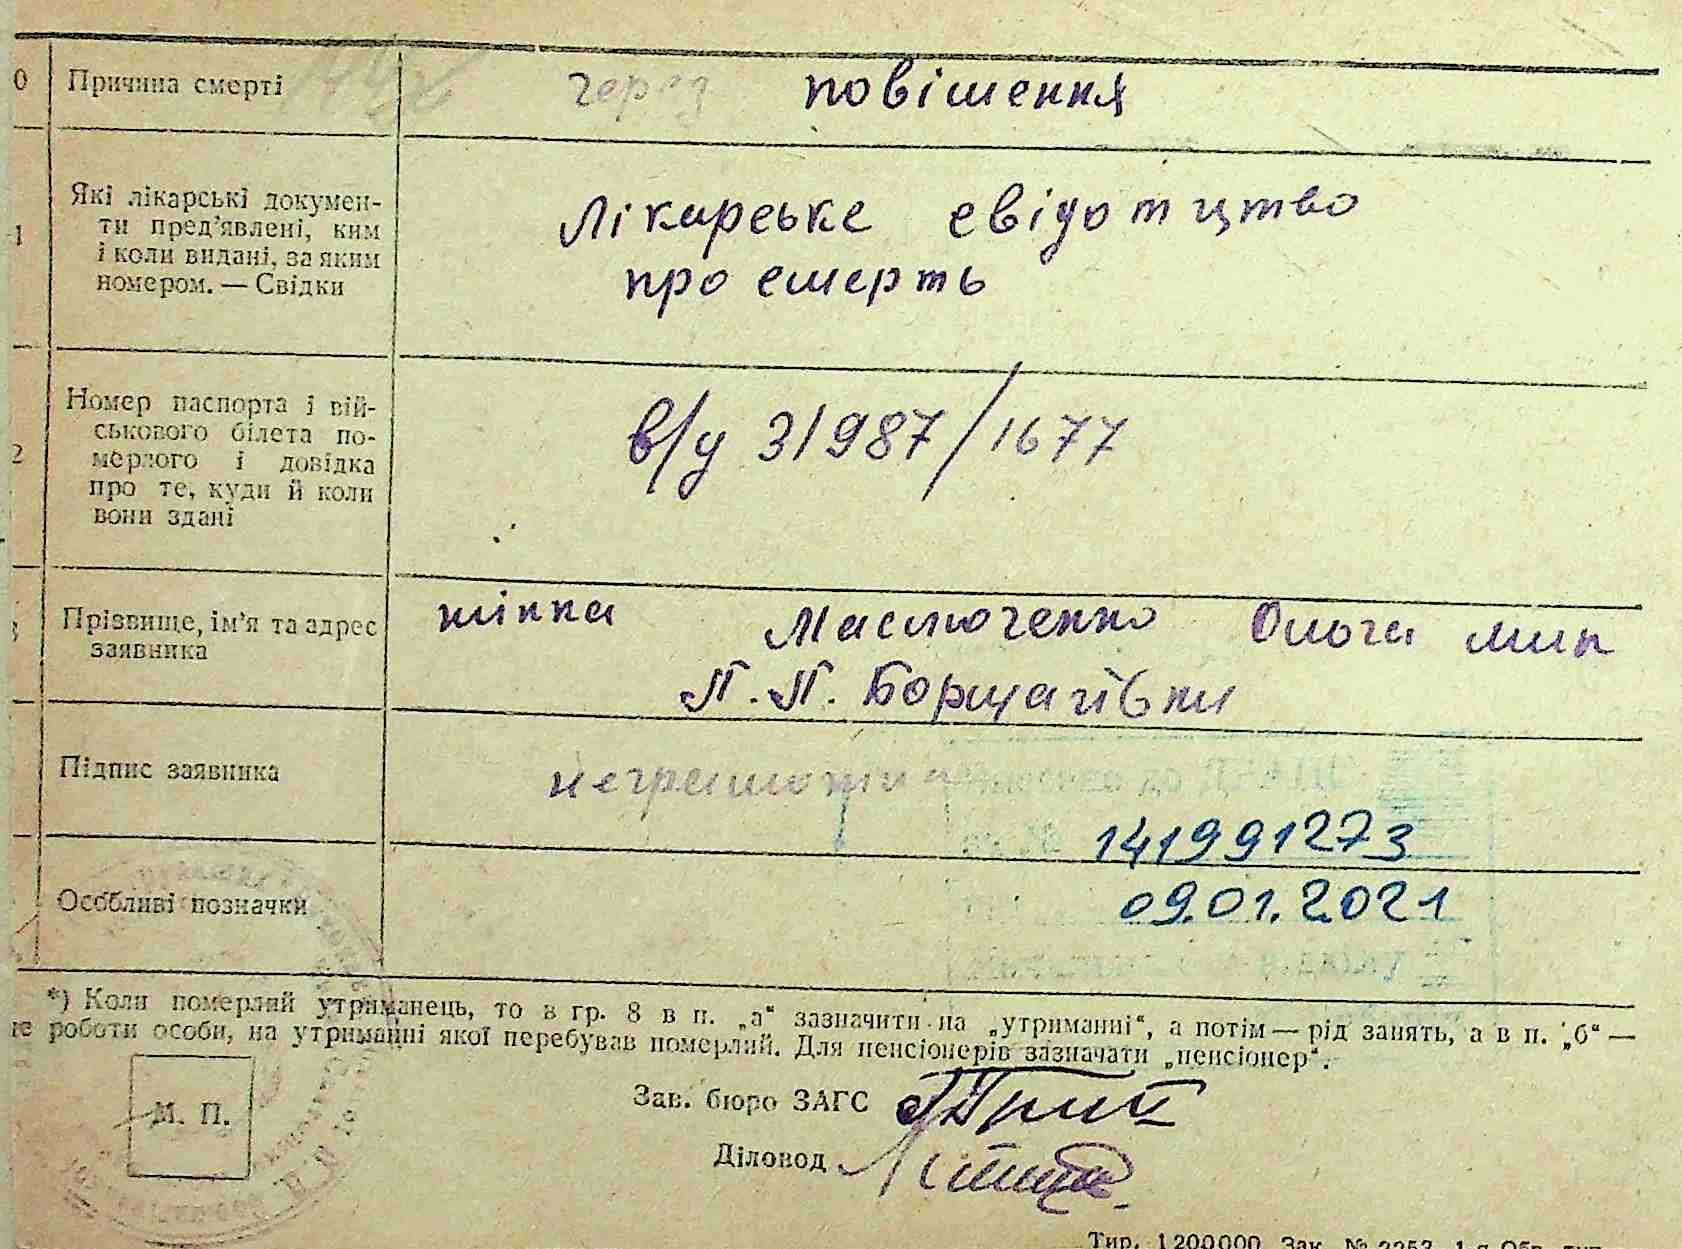 0 Причина смерті через повішення
1 Які лікарські докумен-
ти пред’явлені, ким
і коли видані, за яким
номером. — Свідки
Лікарське свідотцтво
про смерть
2 Номер паспорта і вій-
ськового білета по-
мерлого і довідка
про те, куди й коли
вони здані
в/у 31987/1677
Прізвище, ім’я та адрес
заявника
жінка Маслюченко Ольга
П. П. Борщагівки
Підпис заявника неграмотна
141991273
Особливі позначки 09.01.2021
*) Коли померлий утриманець, то в гр. 8 в п. „а“ зазначити на „утриманні“, а потім — рід занять, а в п. „б“ —
це роботи особи, на утриманні якої перебував померлий. Для пенсіонерів зазначати „пенсіонер“.
М. П.
Зав. бюро ЗАГС
Діловод
Тир. 1200000 Зак. № 2253. 1-а Обр. тип.